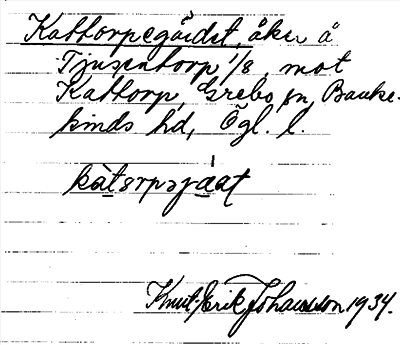 Kattorpegärdet, åker å
Tjusentorp 1/8, mot
Kattorp, Grebo sn, Banke-
kinds hd, Ögl. l.
Knut/Erik Johansson 1934.